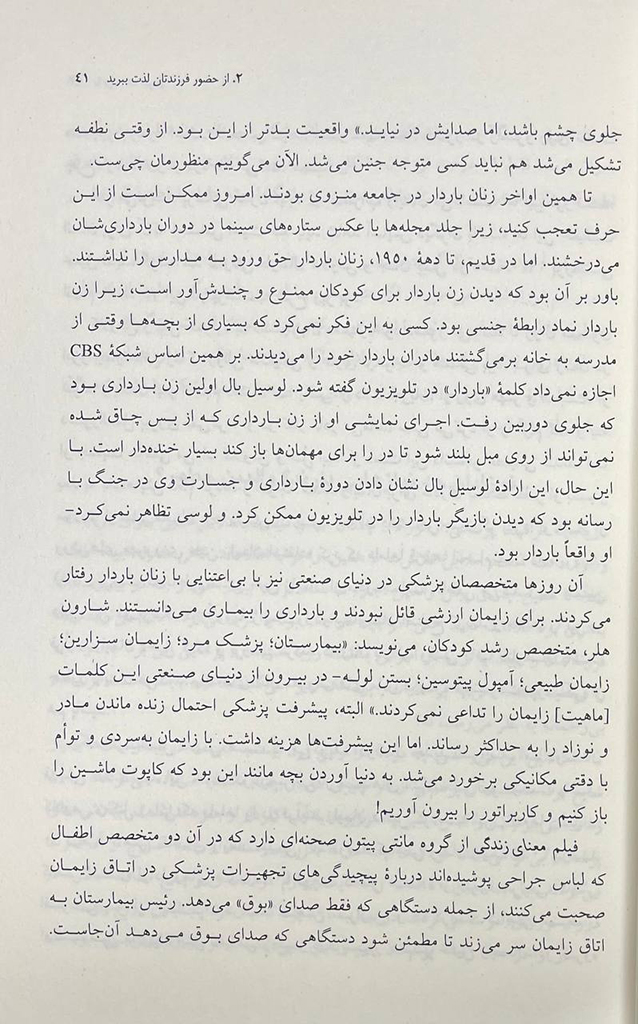 ۲. از حضور فرزندتان لذت ببرید ۴۱
جلوی چشم باشد، اما صدایش در نیاید.» واقعیت بدتر از این بود. از وقتی نطفه
تشکیل می‌شد هم نباید کسی متوجه جنین می‌شد. الآن می‌گوییم منظورمان چی‌ست.
تا همین اواخر زنان باردار در جامعه منزوی بودند. امروز ممکن است از این
حرف تعجب کنید، زیرا جلد مجله‌ها با عکس ستاره‌های سینما در دوران بارداری‌شان
می‌درخشند. اما در قدیم، تا دههٔ ۱۹۵۰، زنان باردار حق ورود به مدارس را نداشتند.
باور بر آن بود که دیدن زن باردار برای کودکان ممنوع و چندش‌آور است، زیرا زن
باردار نماد رابطهٔ جنسی بود. کسی به این فکر نمی‌کرد که بسیاری از بچه‌ها وقتی از
مدرسه به خانه برمی‌گشتند مادران باردار خود را می‌دیدند. بر همین اساس شبکهٔ CBS
اجازه نمی‌داد کلمهٔ «باردار» در تلویزیون گفته شود. لوسیل بال اولین زن بارداری بود
که جلوی دوربین رفت. اجرای نمایشی او از زن بارداری که از بس چاق شده
نمی‌تواند از روی مبل بلند شود تا در را برای مهمان‌ها باز کند بسیار خنده‌دار است. با
این حال، این ارادهٔ لوسیل بال نشان دادن دورهٔ بارداری و جسارت وی در جنگ با
رسانه بود که دیدن بازیگر باردار را در تلویزیون ممکن کرد. و لوسی تظاهر نمی‌کرد-
او واقعاً باردار بود.
آن روزها متخصصان پزشکی در دنیای صنعتی نیز با بی‌اعتنایی با زنان باردار رفتار
می‌کردند. برای زایمان ارزشی قائل نبودند و بارداری را بیماری می‌دانستند. شارون
هلر، متخصص رشد کودکان، می‌نویسد: «بیمارستان؛ پزشک مرد؛ زایمان سزارین؛
زایمان طبیعی؛ آمپول پیتوسین؛ بستن لوله- در بیرون از دنیای صنعتی این کلمات
[ماهیت] زایمان را تداعی نمی‌کردند.» البته، پیشرفت پزشکی احتمال زنده ماندن مادر
و نوزاد را به حداکثر رساند. اما این پیشرفت‌ها هزینه داشت. با زایمان به‌سردی و توأم
با دقتی مکانیکی برخورد می‌شد. به دنیا آوردن بچه مانند این بود که کاپوت ماشین را
باز کنیم و کاربراتور را بیرون آوریم!
فیلم معنای زندگی از گروه مانتی پیتون صحنه‌ای دارد که در آن دو متخصص اطفال
که لباس جراحی پوشیده‌اند دربارهٔ پیچیدگی‌های تجهیزات پزشکی در اتاق زایمان
صحبت می‌کنند، از جمله دستگاهی که فقط صدای «بوق» می‌دهد. رئیس بیمارستان به
اتاق زایمان سر می‌زند تا مطمئن شود دستگاهی که صدای بوق می‌دهد آن‌جاست.